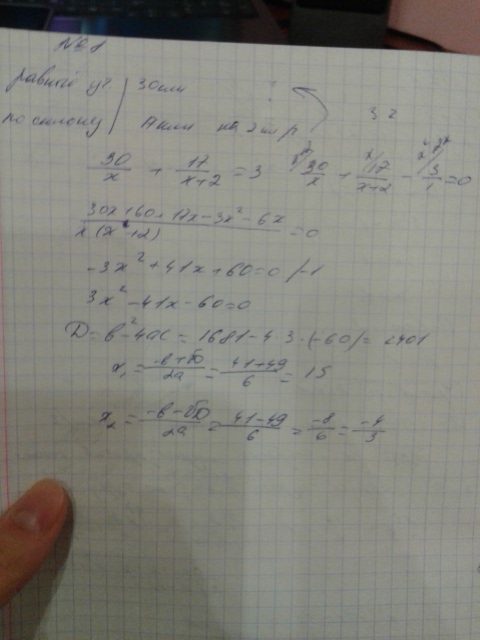 № 1
равный уч | 30 км
по склону | на 2 км/ч 3 ч
30/x + 17/(x+2) = 3 30/x + 17/(x+2) - 3/1 = 0
(30x+60+17x-3x²-6x)/(x(x+2)) = 0
-3x²+41x+60=0 /-1
3x²-41x-60=0
D=b²-4ac=1681-4·3·(-60)=2401
x₁=(-b+√D)/2a=(41+49)/6=15
x₂=(-b-√D)/2a=(41-49)/6=-8/6=-4/3